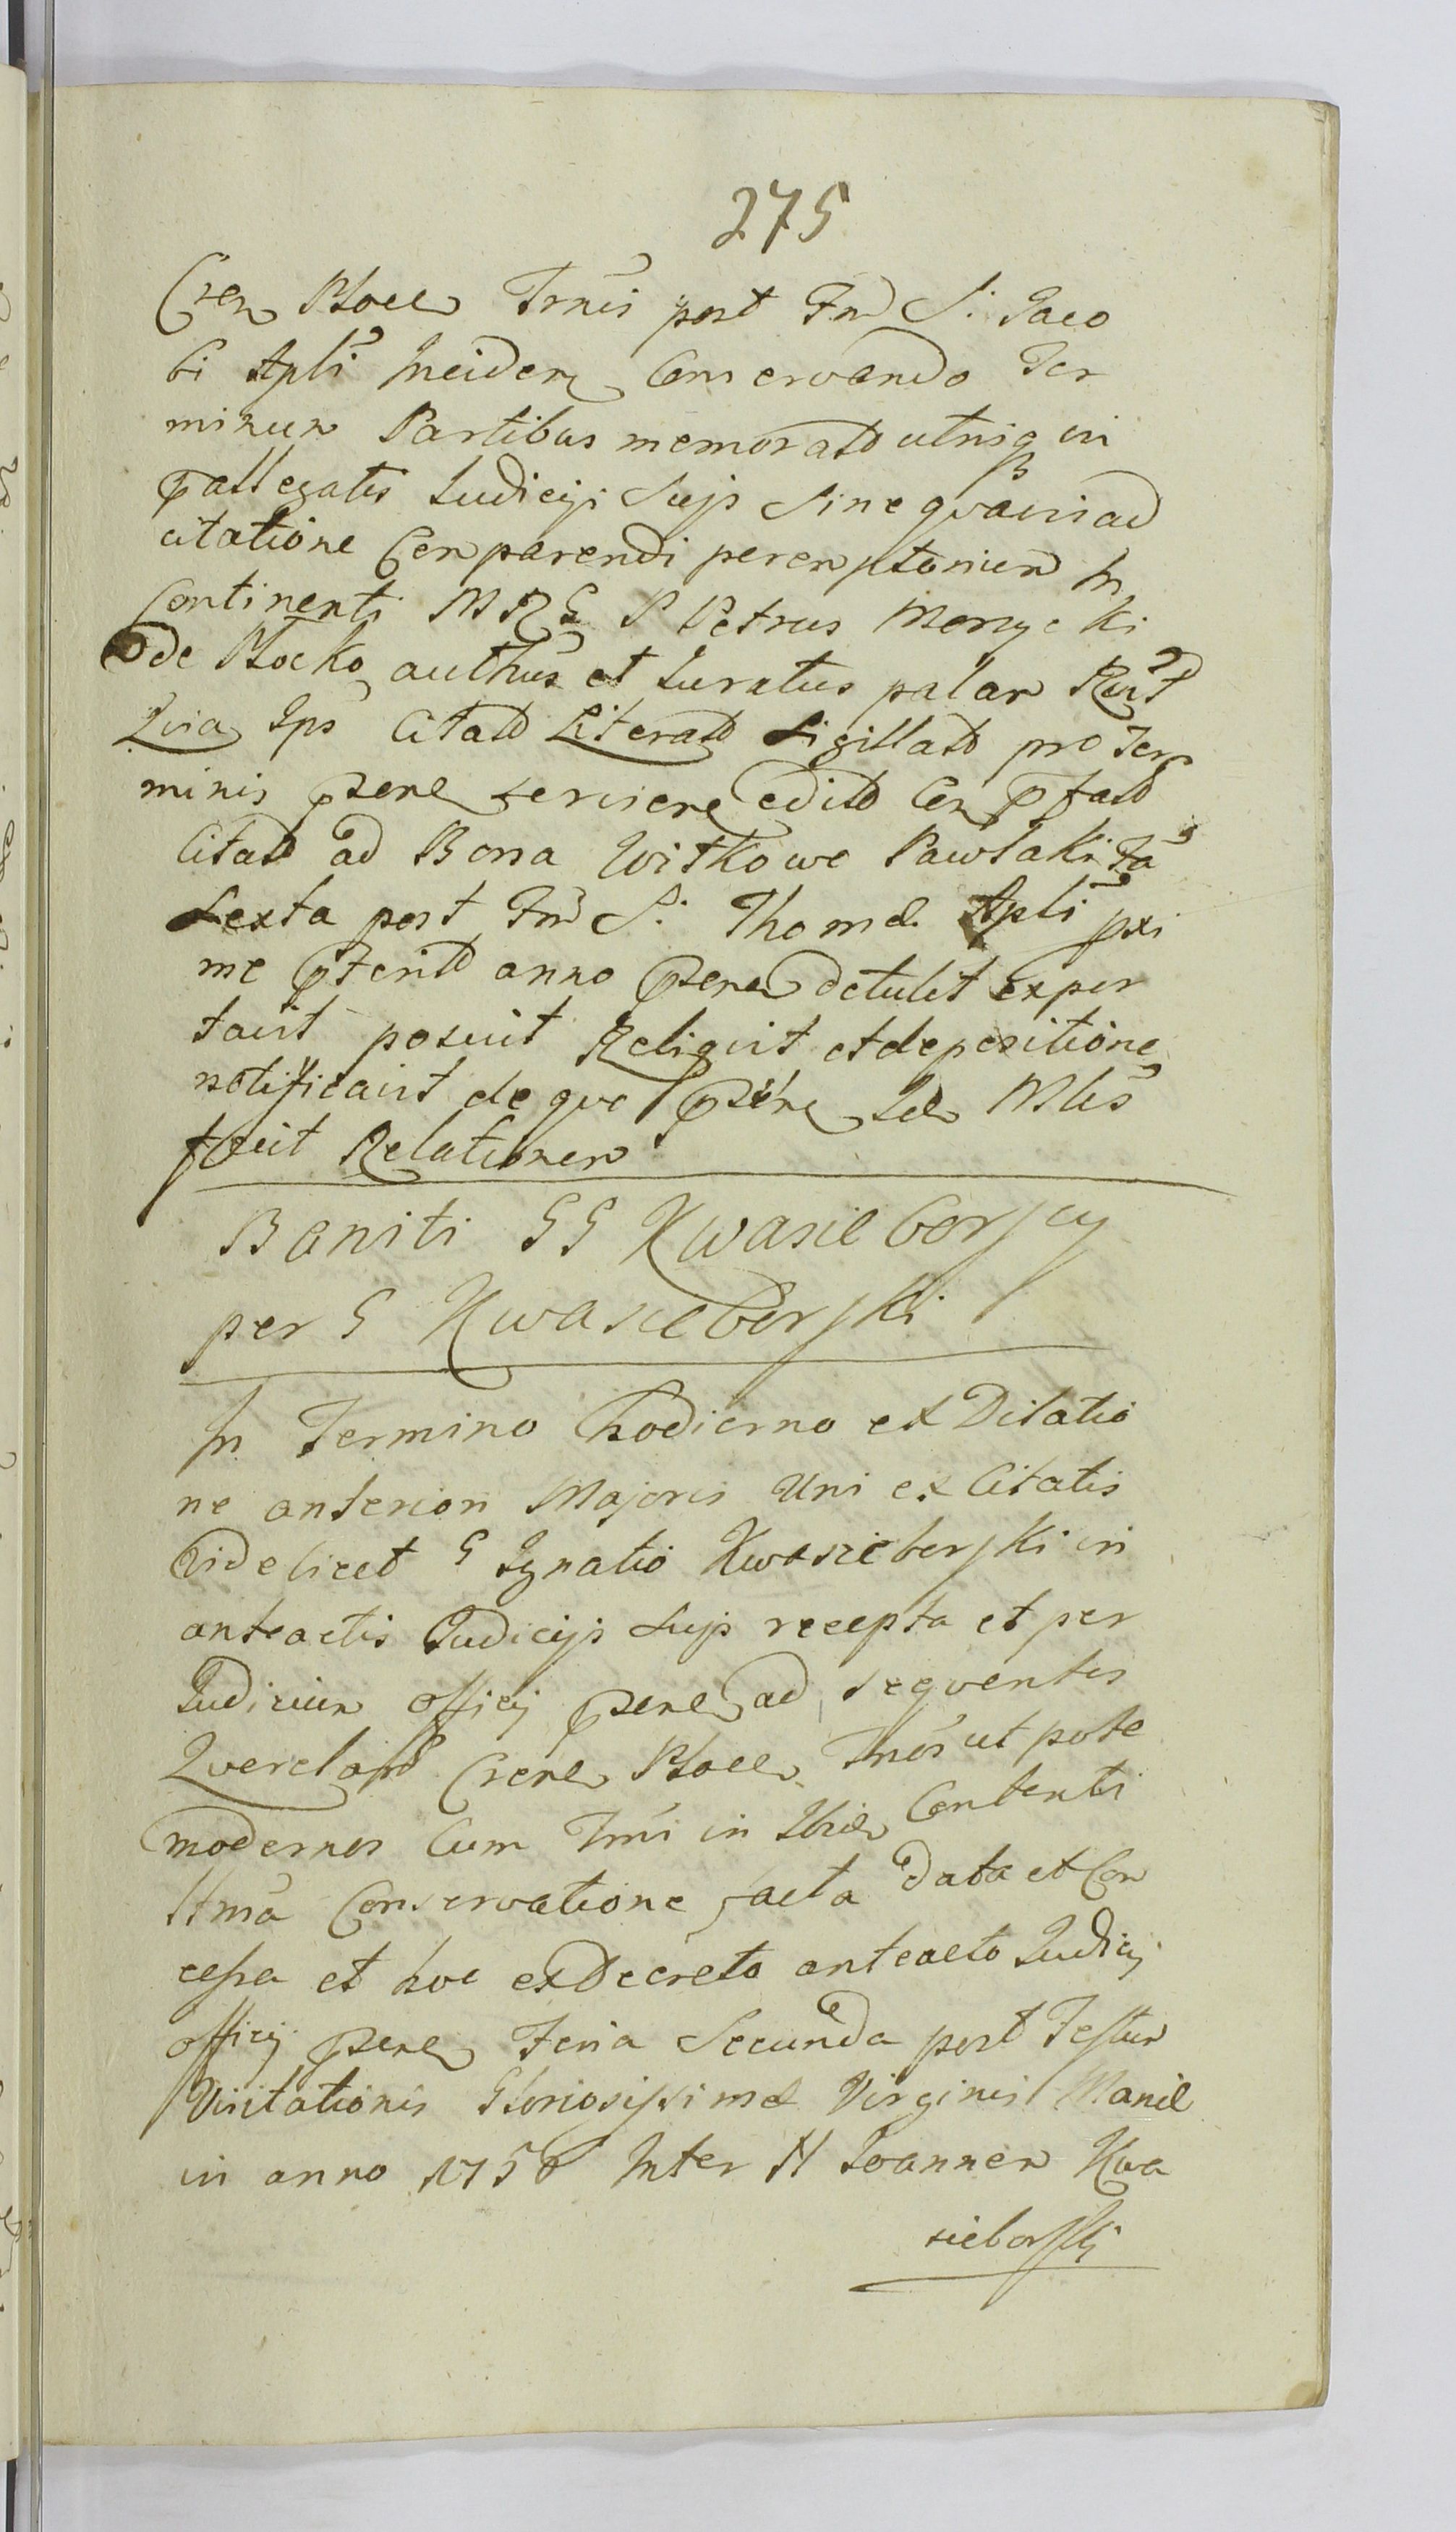 275
Cren Plocen Trnis post Fm S. Jaco
bi Apli Incidens Conservando Ter
minum Partibus memorato utrisq in
pallegatis Judicijs Sujs Sine quavis ad
citatione Comparendi peremptorium In
Continenti M R G P Petrus
de Plocko authus et Juratus palam
Quia Ips Citato Literato Sigillato pro Ter
minis pzene serviene edito
Citato ad Bona Witkowo Pawlaki Fa
Sexta post Fm S. Thomæ Apli pxi
me pterito anno pzene detulit expor
tavit posuit Reliquit et depositione
notificavit de quo pzene Mlis
fecit Relationem
Baniti GG Kwasieborscy
per G Kwasieborski
In Termino hodierno ex Dilatio
ne anterion Majoris Uni ex Citatis
Videlicet G Ignatio Kwasieborski in
anteactis Judicijs Sujs recepta et per
Judicium officij pzene ad sequentes
Querelas Crene Plocen Trnos ut pote
modernos Cum Trni in Contenti
ttma Conservatione facta data et Con
cessa et hoc ex Decreto anteacto Judicij
officij pzene Feria Secunda post Festum
Visitationis Gloriosissimæ Virginis Mariæ
in anno 1758 Inter N Joannem Kwa
sieborski